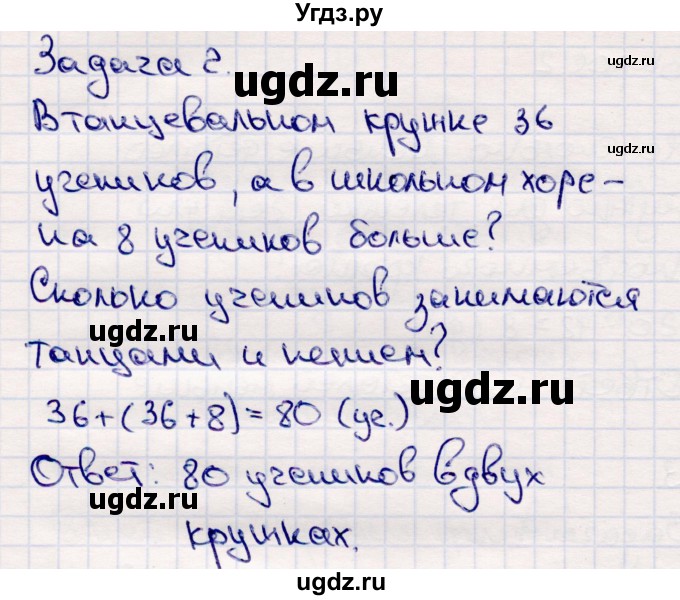 Угдз.ру
Задача 2.
ugdz.ru
ugdz.ru
В танцевальном кружке 36
ugdz.ru
учеников, а в школьном хоре -
на 8 учеников больше?
ugdz.ru
Сколько учеников занимаются
ugdz.ru
танцами и пением?
ugdz.ru
36+(36+8)=80 (уч.)
Ответ: 80 учеников в двух
ugdz.ru
ugdz.ru
кружках.
ugdz.ru